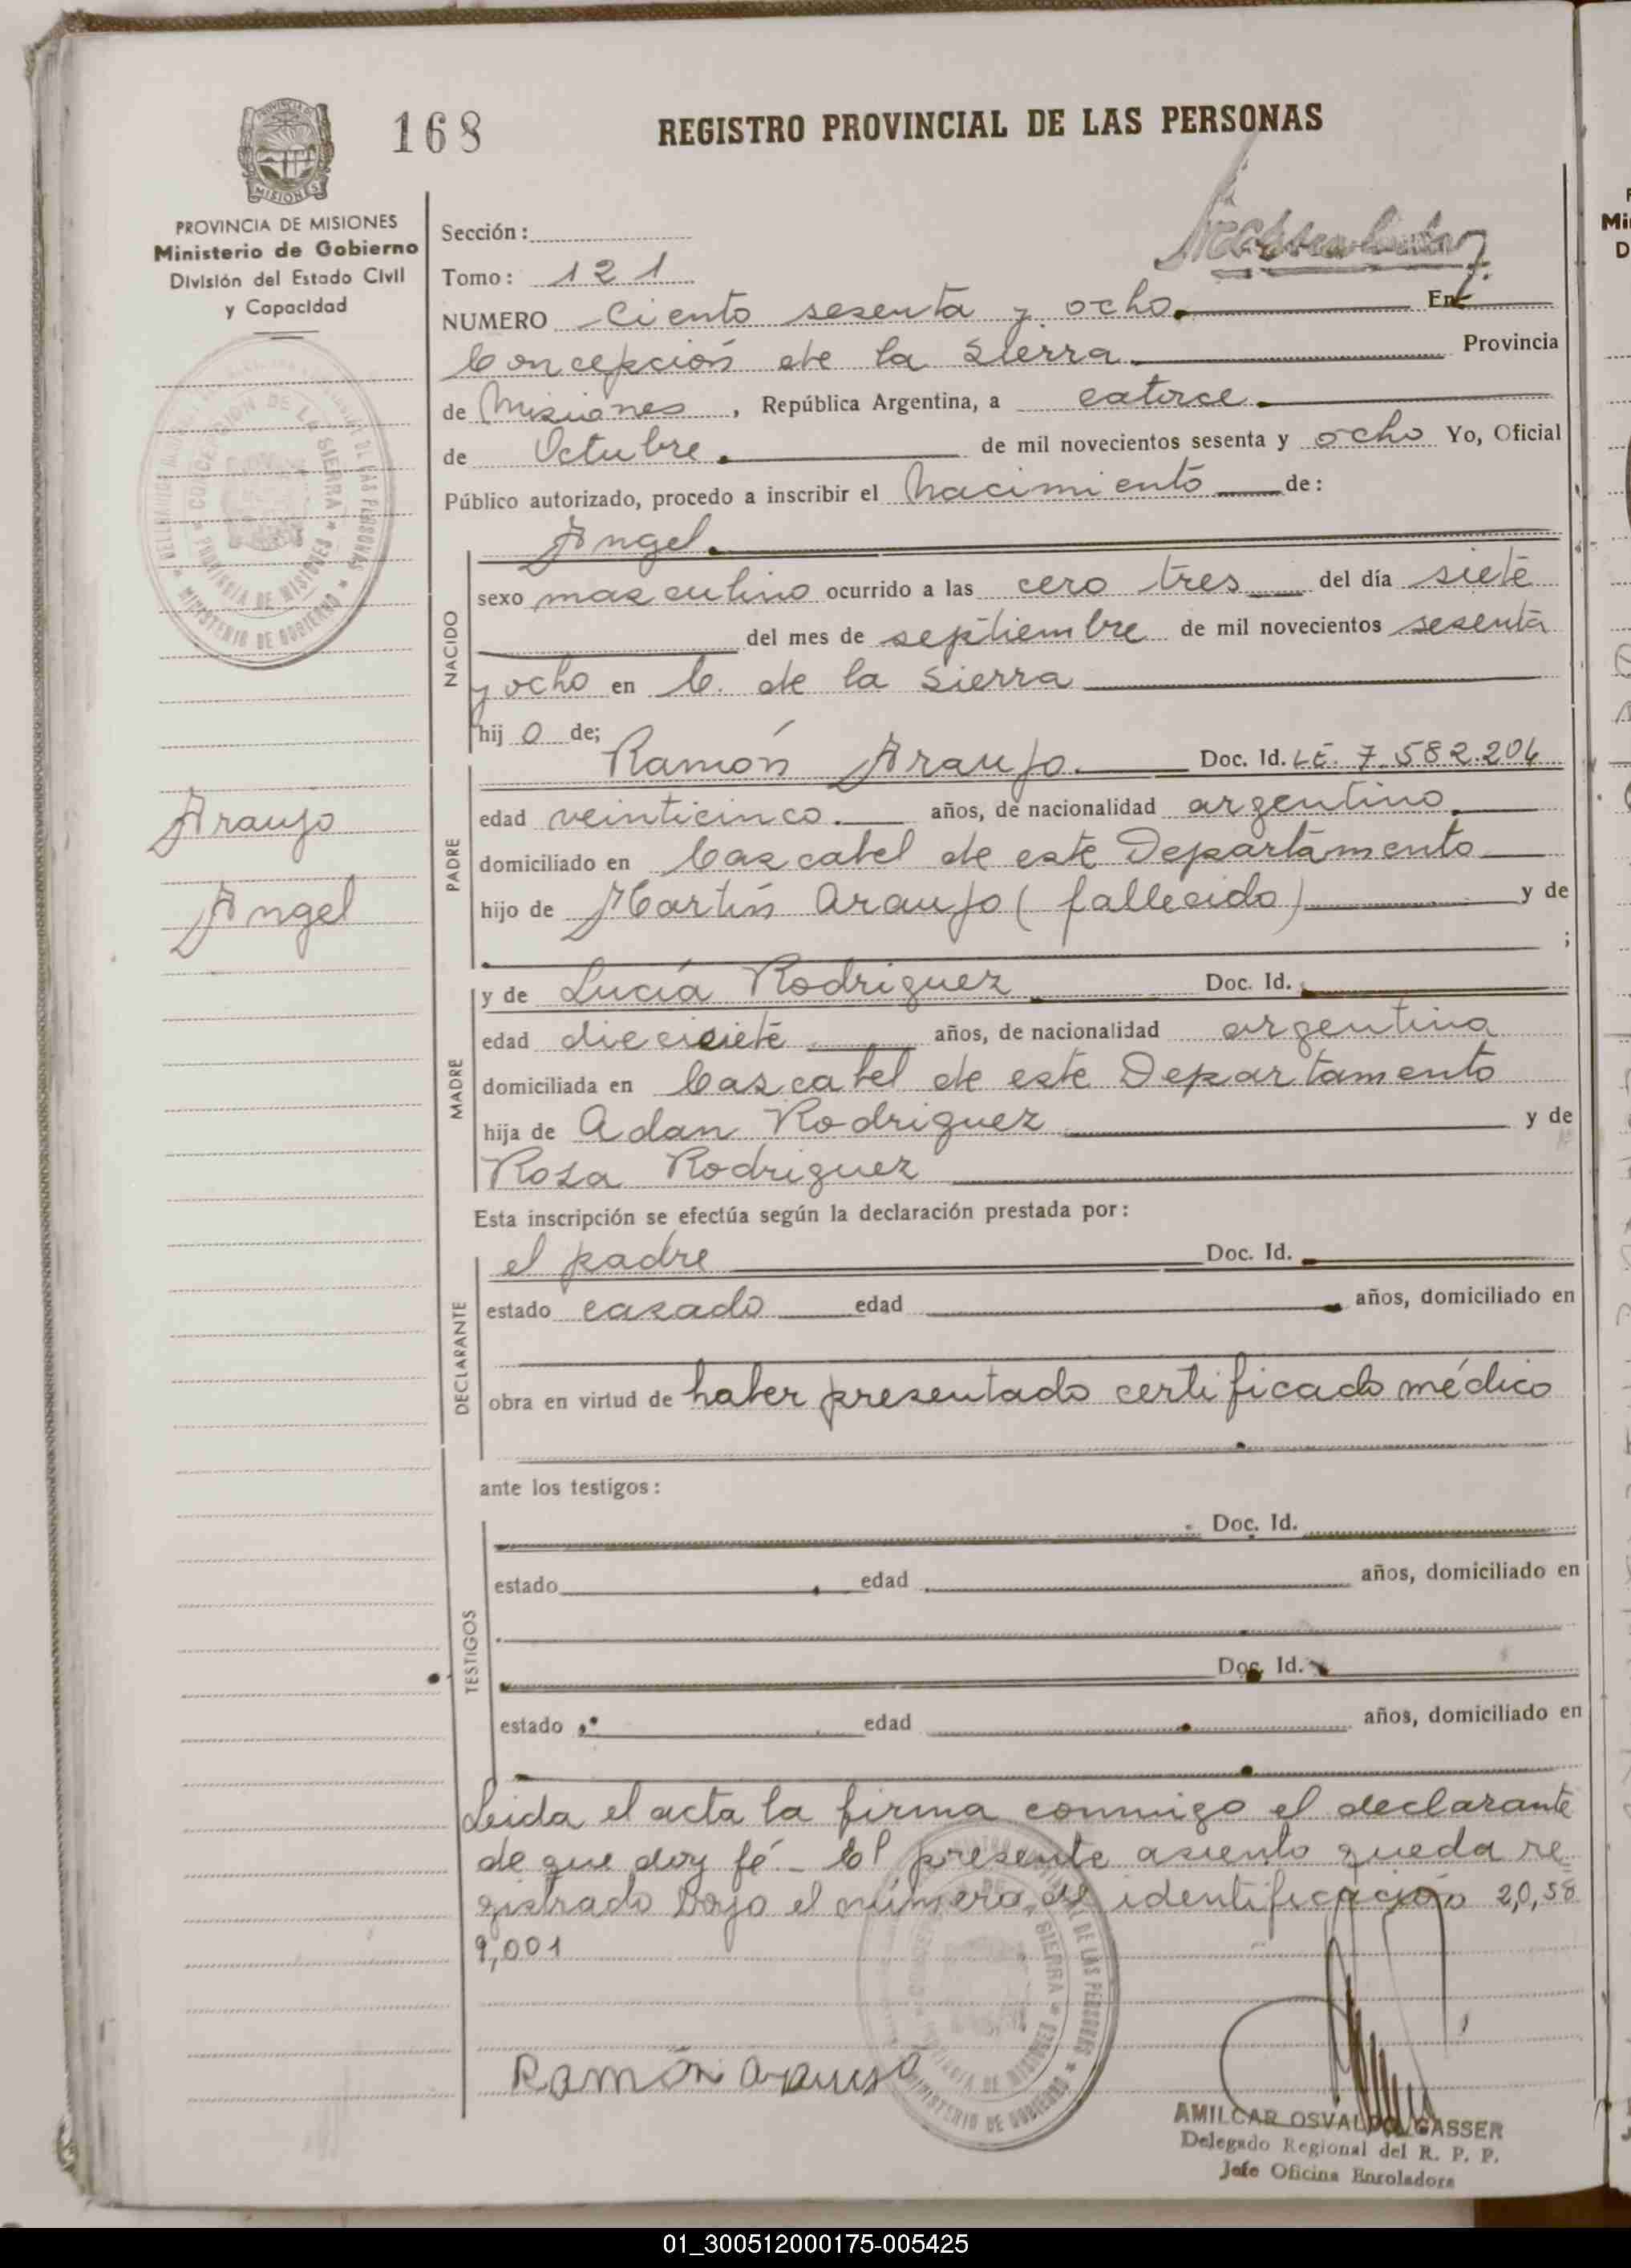 168
REGISTRO PROVINCIAL DE LAS PERSONAS
MISIONES
PROVINCIA DE MISIONES
Ministerio de Gobierno
División del Estado Civil
y Capacidad
Sección:
Tomo: 121
NUMERO Ciento sesenta y ocho En
Concepción de la Sierra Provincia
de Misiones, República Argentina, a catorce
de Octubre de mil novecientos sesenta y ocho Yo, Oficial
Público autorizado, procedo a inscribir el Nacimiento de:
NACIDO
Angel
sexo masculino ocurrido a las cero tres del día siete
del mes de septiembre de mil novecientos sesenta
y ocho en C. de la Sierra
hijo de;
PADRE
Ramón Araujo. Doc. Id. LE. 7.582.204
edad veinticinco. años, de nacionalidad argentino.
domiciliado en Cascatel de este Departamento
hijo de Martín Araujo (fallecido) y de
;
Araujo
Angel
MADRE
y de Lucía Rodriguez Doc. Id.
edad diecisiete años, de nacionalidad argentina
domiciliada en Cascatel de este Departamento
hija de Adan Rodriguez y de
Rosa Rodriguez
Esta inscripción se efectúa según la declaración prestada por:
DECLARANTE
el padre Doc. Id.
estado casado edad años, domiciliado en
obra en virtud de haber presentado certificado médico
ante los testigos:
TESTIGOS
Doc. Id.
estado edad años, domiciliado en
Doc. Id.
estado edad años, domiciliado en
Leida el acta la firma conmigo el declarante
de que doy fé.- El presente asiento queda re
gistrado bajo el número de identificación 20,58
9,001
Ramón Araujo
CONCEPCION DE LA SIERRA
PROVINCIA DE MISIONES
MINISTERIO DE GOBIERNO
AMILCAR OSVALDO GASSER
Delegado Regional del R. P. P.
Jefe Oficina Enroladora
01_300512000175-005425